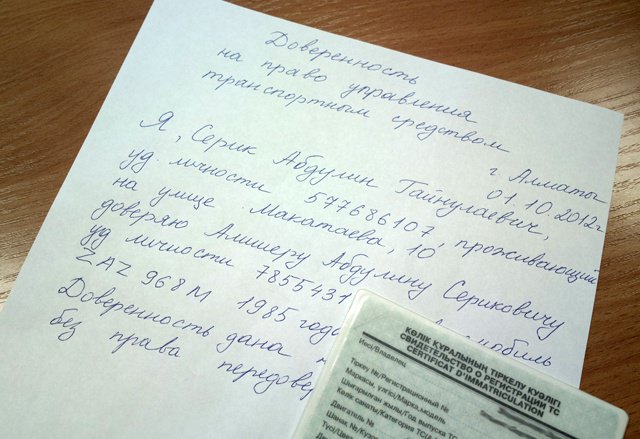 Доверенность
на право управления
транспортным средством
г Алматы
01.10.2012г
Я, Серик Абдулин Гайнулаевич,
уд. личности 577686107, проживающий
на улице Макатаева, 10
доверяю Алишеру Абдулину Сериковичу
уд личности 7855431
ZAZ 968М 1985 года
Доверенность дана
без права передовер
КӨЛІК ҚҰРАЛЫНЫҢ ТІРКЕЛУ КУӘЛІГІ
СВИДЕТЕЛЬСТВО О РЕГИСТРАЦИИ ТС
CERTIFICAT D'IMMATRICULATION
Иесі/Владелец
Тіркеу №/Регистрационный №
Маркасы, үлгісі/Марка, модель
Шығарылған жылы/Год выпуска ТС
Көлік санаты/Категория ТС
Двигатель №
Шанак №/Кузо
Түсі/Цвет